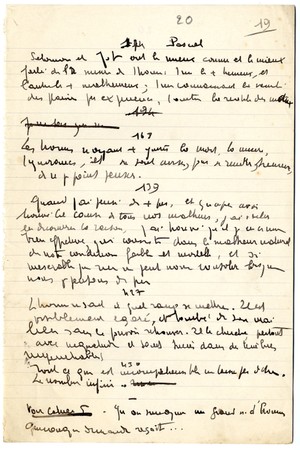 20 19
174 Pascal
Salomon et Job ont le mieux connu et le mieux
parlé de la misère de l'homme l'un le + heureux, et
l'autre le + malheureux; l'un connaissant la vanité
des plaisirs par expérience, l'autre la réalité des maux
167
Les hommes n'ayant pu guérir la mort, la misère,
l'ignorance, ils se sont avisés, pour se rendre heureux,
de ne point penser.
139
Quand j'ai pensé de + près, et qu'après avoir
trouvé la cause de tous nos malheurs, j'ai voulu
en découvrir la raison, j'ai trouvé qu'il y en a une
bien effective, qui consiste dans le malheur naturel
de notre condition faible et mortelle, et si
misérable que rien ne peut nous consoler lorsque
nous y pensons de près
427
L'homme ne sait à quel rang se mettre. Il est
visiblement égaré, et tombé de son vrai
lieu sans le pouvoir retrouver. Il le cherche partout
avec inquiétude et sans succès dans des ténèbres
impénétrables
430
Tout ce qui est incompréhensible ne laisse pas d'être.
Le nombre infini
Voir cahier 5 - Qu'on s'imagine un grand n. d'hommes